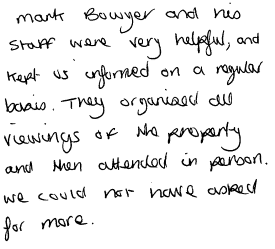 Mark Bowyer and his
staff were very helpful, and
kept us informed on a regular
basis. They organised all
viewings of the property
and then attended in person.
we could not have asked
for more.